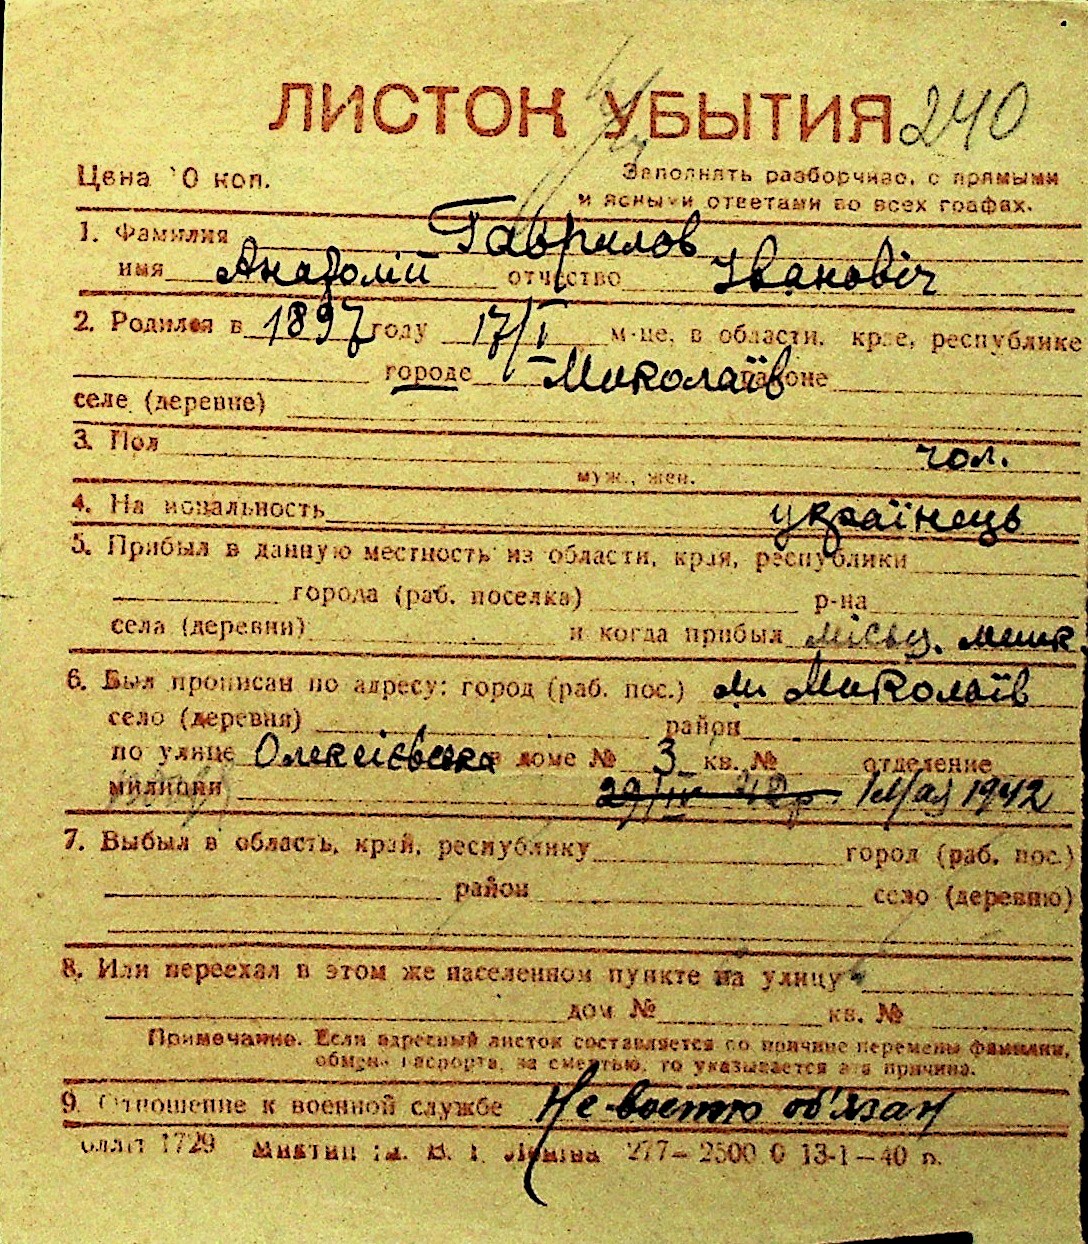 ЛИСТОК УБЫТИЯ 240
Цена 10 коп. Заполнять разборчиво, с прямыми
и ясными ответами во всех графах.
1. Фамилия Гаврилов
имя Анатолій отчество Івановіч
2. Родился в 1897 году 17/I м-це, в области, крае, республике
городе Миколаїв районе
селе (деревне)
3. Пол чол.
муж., жен.
4. Национальность українець
5. Прибыл в данную местность из области, края, республики
города (раб. поселка) р-на
села (деревни) и когда прибыл місьц. мешк.
6. Был прописан по адресу: город (раб. пос.) м. Миколаїв
село (деревня) район
по улице Олексієвська в доме № 3 кв. № отделение
милиции 29/IV 42р. 1 Мая 1942
7. Выбыл в область, край, республику город (раб. пос.)
район село (деревню)
8. Или переехал в этом же населенном пункте на улицу
дом № кв. №
Примечание. Если адресный листок составляется по причине перемены фамилии,
обмена паспорта, за смертью, то указывается эта причина.
9. Отношение к военной службе Не воєнно об'язан
1729 В. І. Леніна 277—2500 0 13-1—40 р.